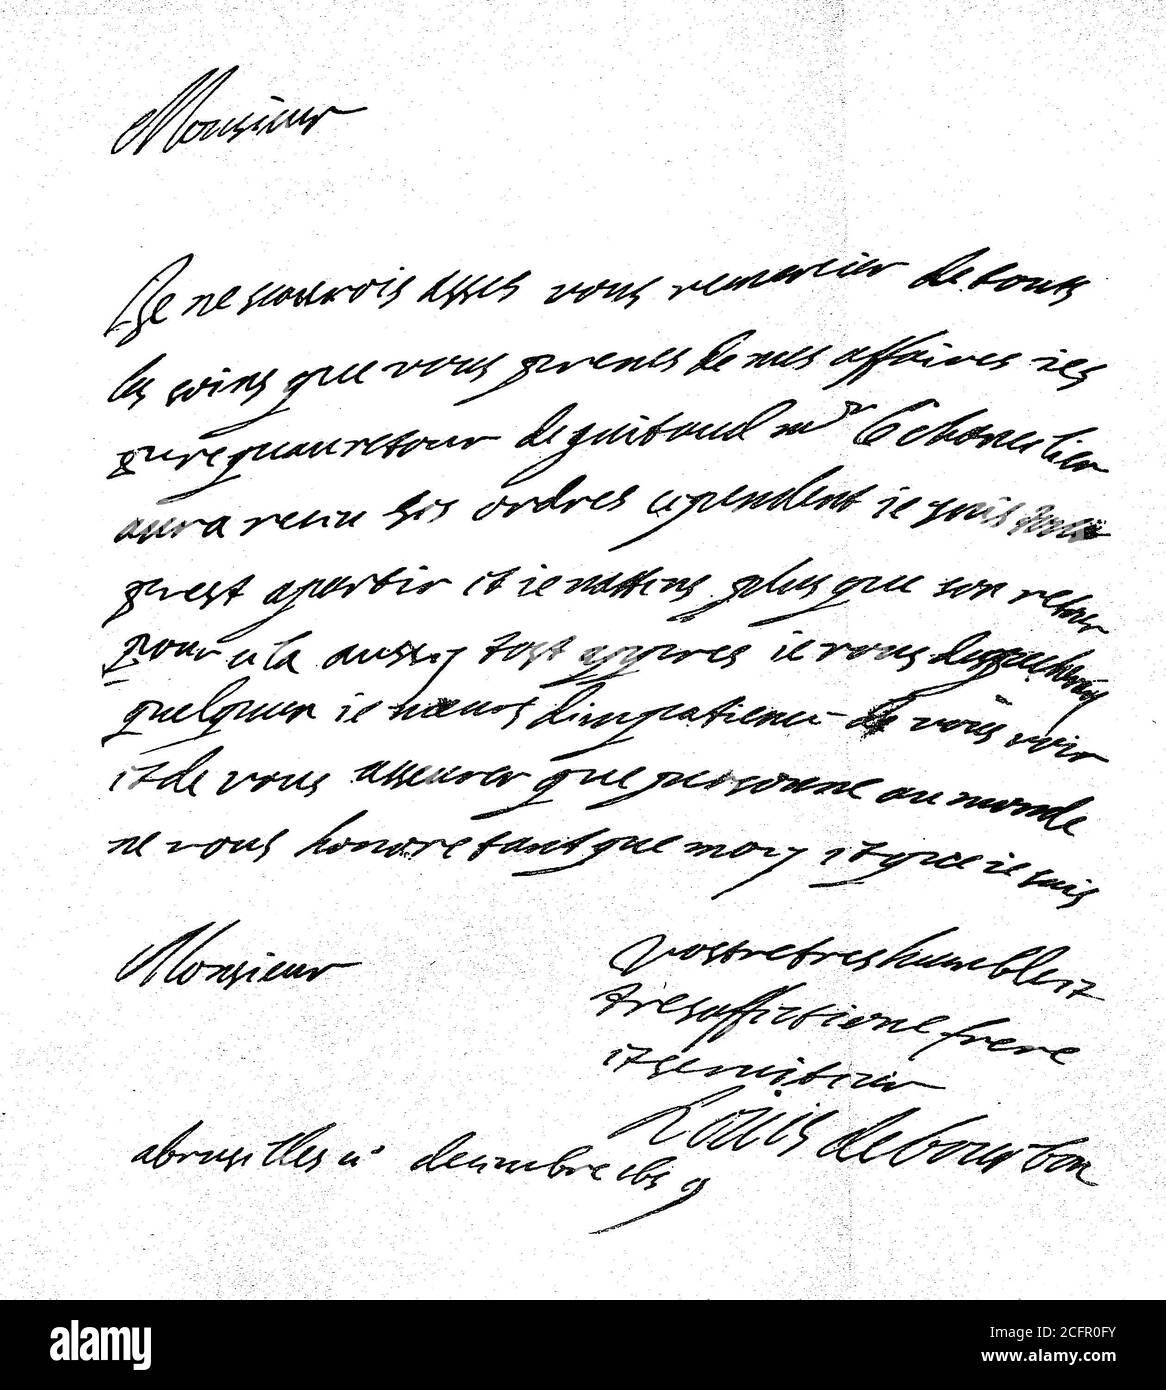 Monsieur
Je ne scaurois asses vous remercier de touts
les soins que vous prenes de mes affaires ie
qu au retour de guitaud mr le chancelier
aura receu ses ordres cependent ie suis
prest a partir et ie nattens plus que son retour
pour cela aussy tost appres ie vous
quelquun ie meurs dimpatience de vous voir
et de vous asseurer que personne au monde
ne vous honore tant que moy et que ie suis
Monsieur
vostre tres humble et
tres affectione frere
et serviteur
Louis de bourbon
a bruxelles ce decembre 1659
alamy
Image ID: 2CFR0FY
www.alamy.com